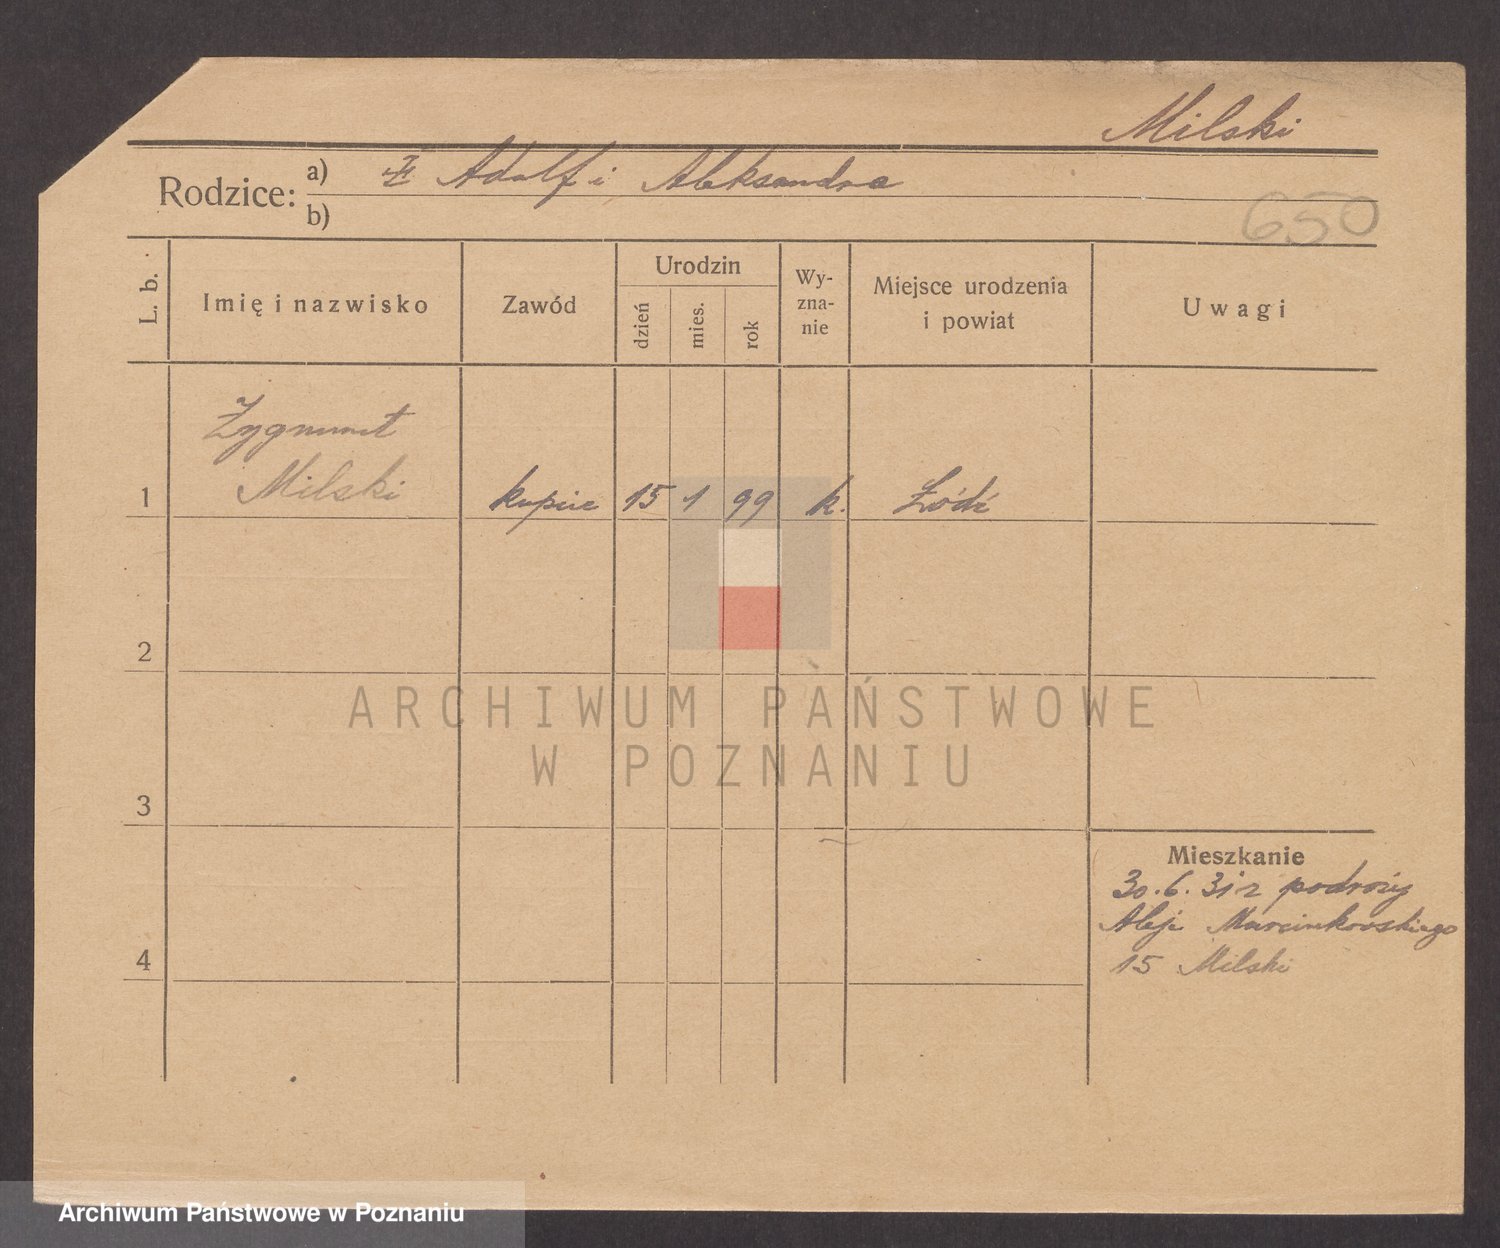 Milski
Rodzice:
a) Adolf i Aleksandra
b)
650
L. b.
Imię i nazwisko
Zawód
Urodzin
dzień
mies.
rok
Wy-
zna-
nie
Miejsce urodzenia
i powiat
Uwagi
Zygmunt
1 Milski kupiec 15 1 99 k. Łódź
2
ARCHIWUM PAŃSTWOWE
W POZNANIU
3
Mieszkanie
30.6.31 z podróży
Aleje Marcinkowskiego
4
15 Milski
Archiwum Państwowe w Poznaniu